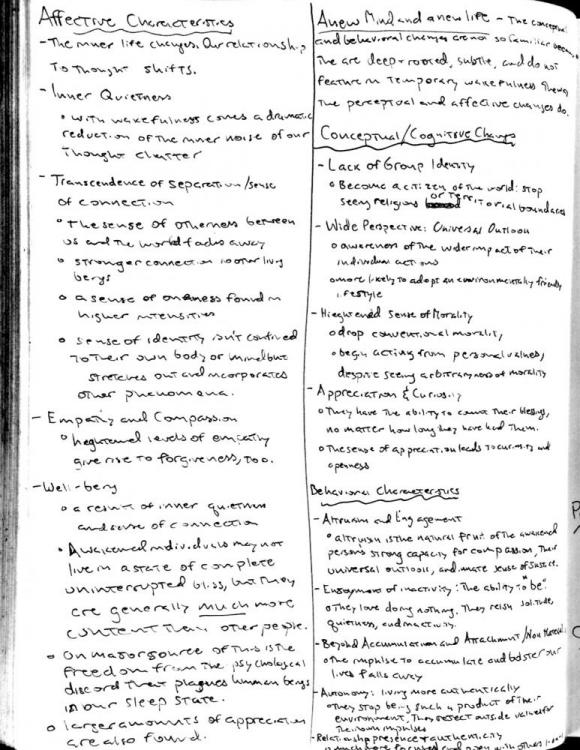 Affective Characteristics
- The inner life changes. Our relationship
to thought shifts.
- Inner Quietness
• with wakefulness comes a dramatic
reduction of the inner noise of our
thought chatter
- Transcendence of separation/sense
of connection
• the sense of otherness between
us and the world fades away
• stronger connection to other living
beings
• a sense of oneness found in
higher intensities
• sense of identity isn't confined
to their own body or mind but
stretches out and incorporates
other phenomena.
- Empathy and Compassion
• heightened levels of empathy
give rise to forgiveness, too.
- Well-being
• a result of inner quietness
and sense of connection
• Awakened individuals may not
live in a state of complete
uninterrupted bliss, but they
are generally much more
content than other people.
• One major source of this is the
freedom from the psychological
discord that plagues human beings
in our sleep state.
• larger amounts of appreciation
are also found.
A new Mind and a new life - The conceptual
and behavioral changes are not so familiar because
the are deep-rooted, subtle, and do not
feature in temporary wakefulness the way
the perceptual and affective changes do.
Conceptual/Cognitive Changes
- Lack of Group Identity
• Become a citizen of the world: stop
seeing religious or territorial boundaries
- Wide Perspective: Universal Outlook
• awareness of the wider impact of their
individual actions
• more likely to adopt an environmentally friendly
lifestyle
- Hieghtened Sense of Morality
• drop conventional morality,
• begin acting from personal values,
despite seeing arbitraryness of morality
- Appreciation & Curiosity
• They have the ability to count their blessings,
no matter how long they have had them.
• The sense of appreciation leads to curiosity and
openness
Behavioral Characteristics
- Altruism and Engagement
• altruism is the natural fruit of the awakened
persons strong capacity for compassion, their
universal outlook, and innate sense of justice.
- Enjoyment of inactivity: The ability to "be"
• They love doing nothing. They relish solitude,
quietness, and inactivity.
- Beyond Accumulation and Attachment/Non Material
• the impulse to accumulate and bolster our
lives falls away
- Autonomy: living more authentically
• they stop being such a product of their
environment. They reject outside values for
their own impulses
- Relationship presence + authenticity